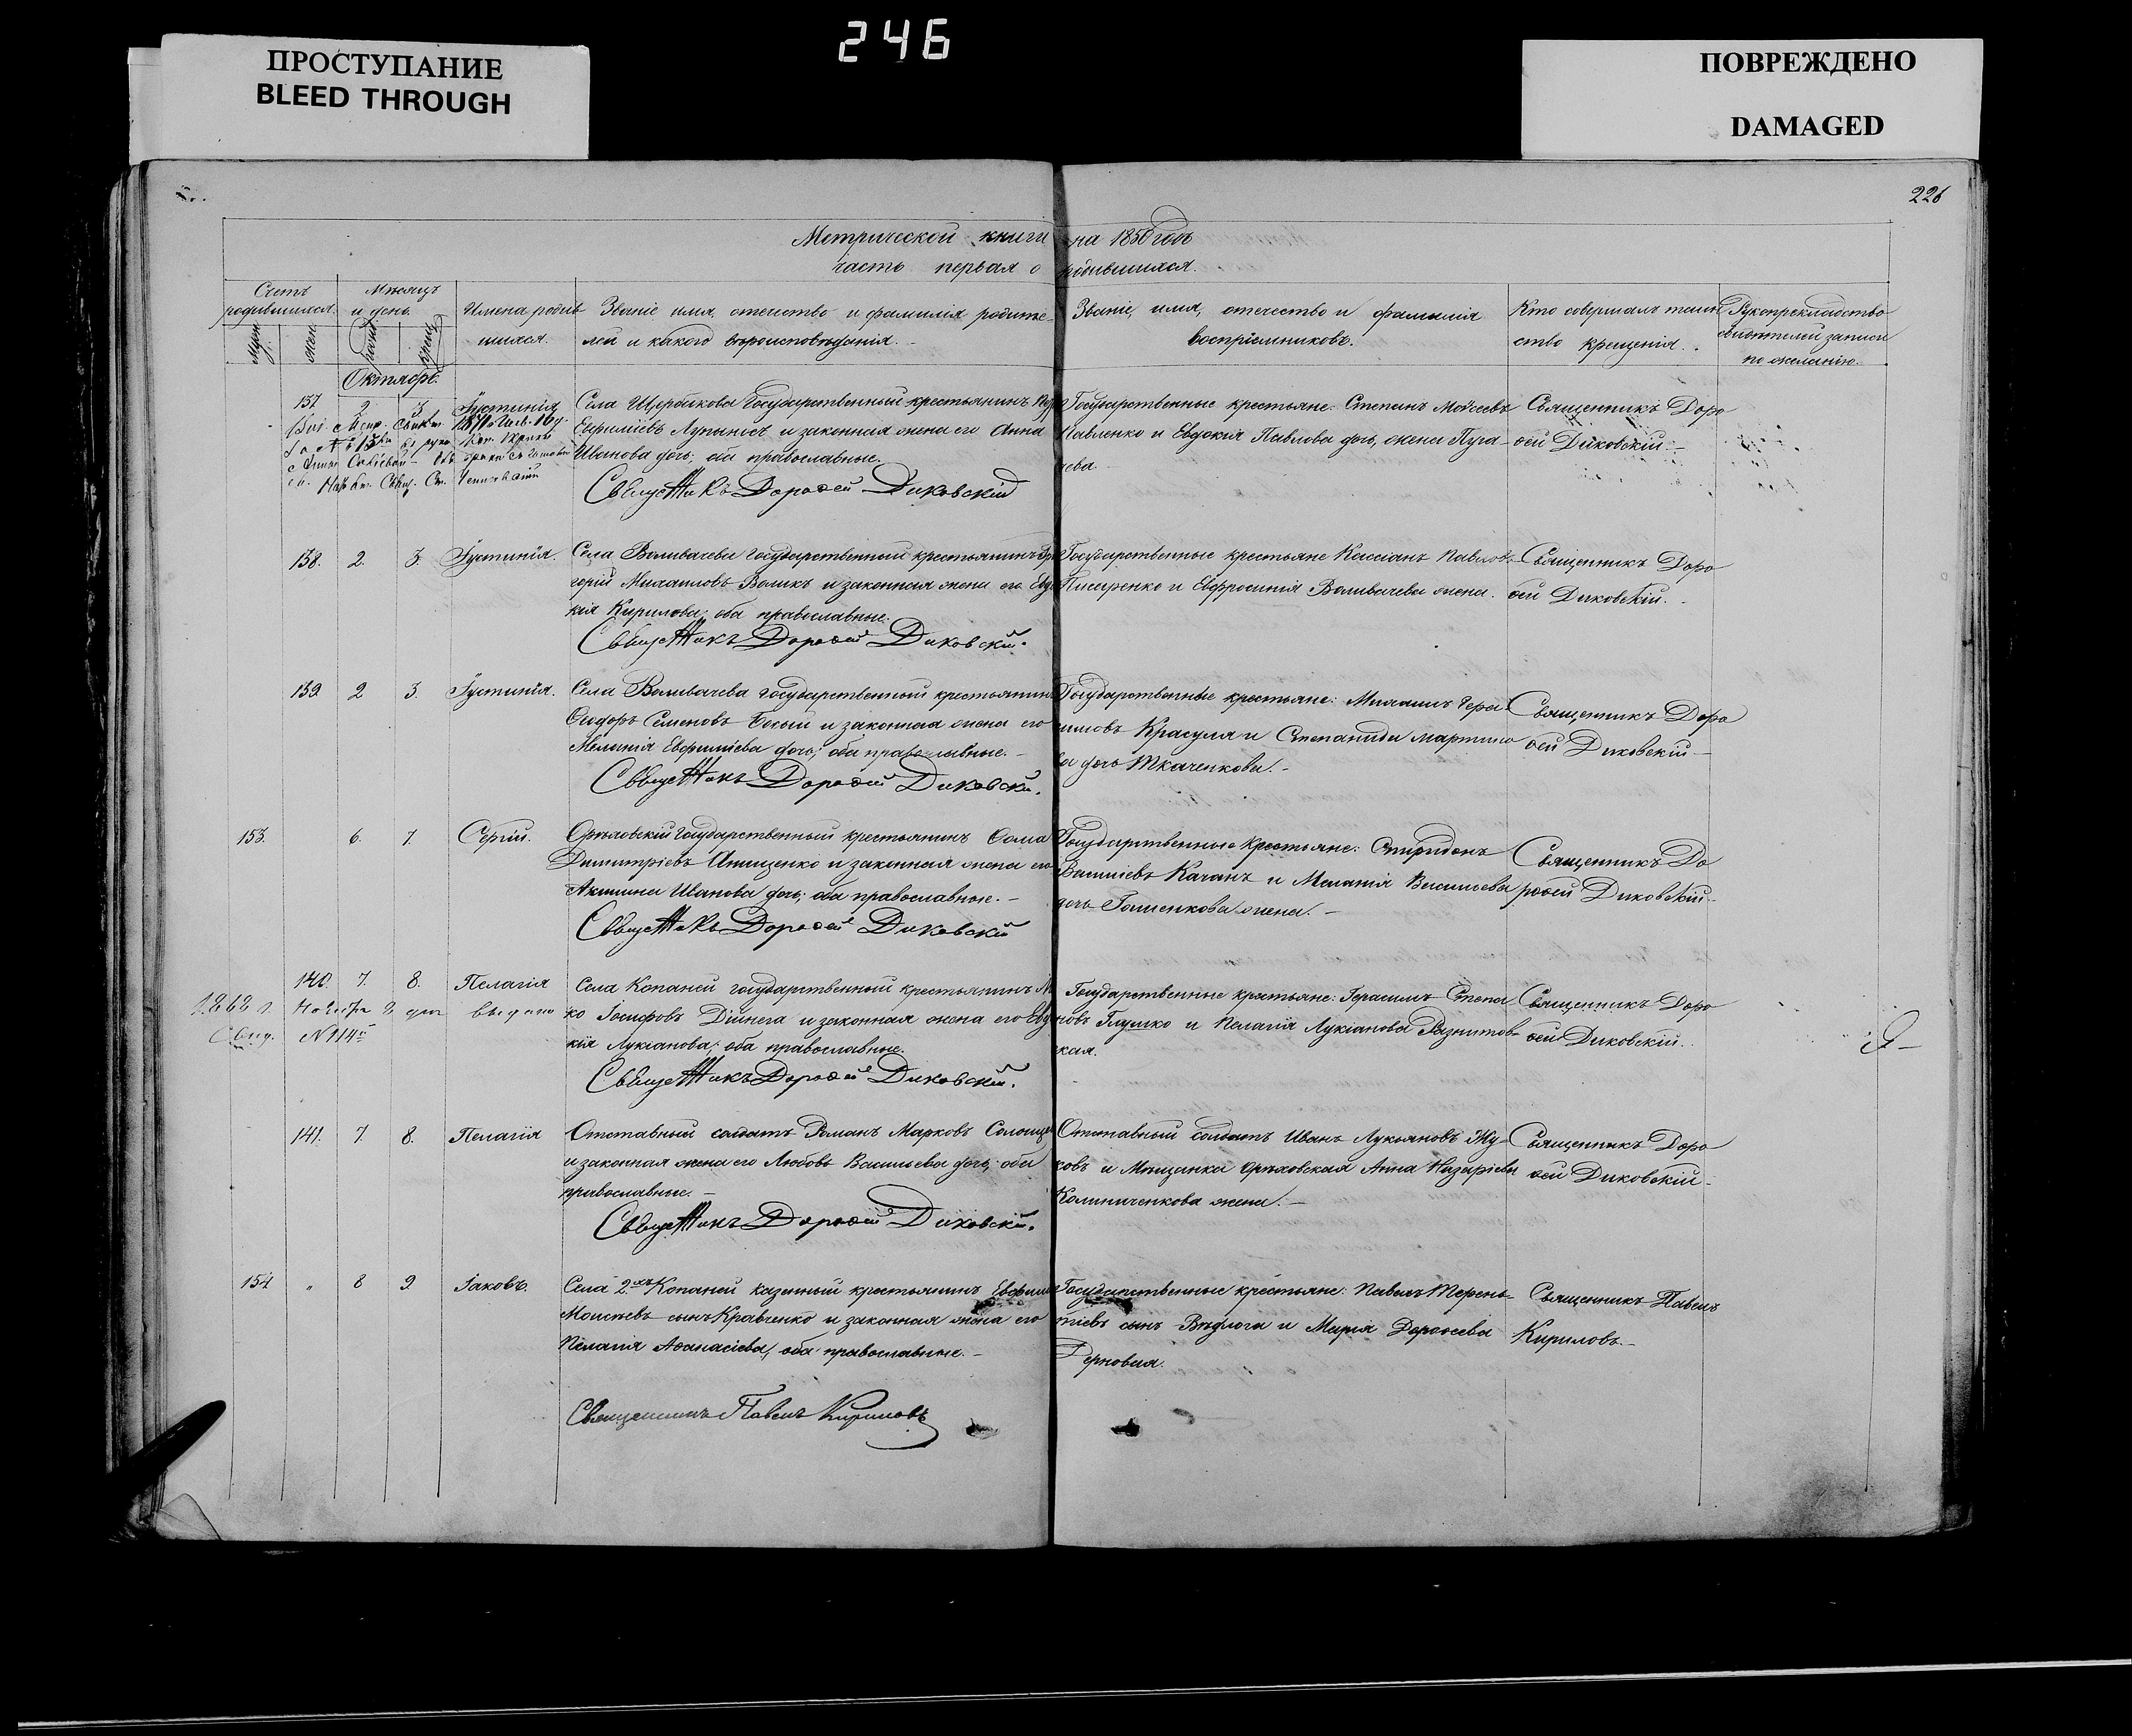 246
ПРОСТУПАНИЕ
BLEED THROUGH
ПОВРЕЖДЕНО
DAMAGED
226
Метрической книги на 1850 годъ
часть первая о родившихся.
Счетъ родившихся.
Муж.
жен.
Мѣсяцъ и день.
Имена родив
шихся.
Званіе имя, отечество и фамилія родите
лей и какого вѣроисповѣданія.
Званіе, имя, отечество и фамилія
воспріемниковъ.
Кто совершалъ таин
ство крещенія.
Рукоприкладство
свидѣтелей записи
по желанію.
Октябрь.
137 2. 3. Іустинія
Села Щербакова Государственный крестьянинъ
Ефиміевъ Лупыносъ и законная жена его Анна
Иванова дочь; оба православные.
Священникъ Дорофей Диковскій
Государственные крестьяне: Степанъ Мойсеевъ
Павленко и Евдокія Павлова дочь, жена Пуга
чева.
Священникъ Доро
ѳей Диковскій.
138. 2. 3. Іустинія.
Села Воливачева государственный крестьянинъ Гри
горій Михаиловъ Воликъ и законная жена его Евдо
кія Кирилова; оба православные.
Священникъ Дорофей Диковскій.
Государственные крестьяне Кассіанъ Павловъ
Писаренко и Евфросинія Воливачева жена.
Священникъ Доро
ѳей Диковскій.
139. 2 3. Іустинія.
Села Воливачева государственный крестьянинъ
Сидоръ Семеновъ Босый и законная жена его
Меланія Евфиміева дочь; оба православные.
Священникъ Дорофей Диковскій.
Государственные крестьяне: Михаилъ Гера
симовъ Красуля и Степанида Мартино
ва дочь Ткаченкова.
Священникъ Доро
ѳей Диковскій
153. 6. 7. Сергій.
Орѣховскій государственный крестьянинъ Ѳома
Димитріевъ Анищенко и законная жена его
Акилина Иванова дочь; оба православные.
Священникъ Дорофей Диковскій
Государственные крестьяне: Спиридонъ
Василіевъ Качанъ и Меланія Васильева
дочь жена.
Священникъ До
роѳей Диковскій
140. 7. 8. Пелагія
1868 г. Ноября 8 дня выдано
Свид. № 114
Села Копаней государственный крестьянинъ
ко Іосифовъ Дійнега и законная жена его Евдо
кія Лукіанова; оба православные.
Священникъ Дорофей Диковскій.
Государственные крестьяне: Герасимъ Степа
новъ Глушко и Пелагія Лукіанова
кая.
Священникъ Доро
ѳей Диковскій.
141. 7. 8. Пелагія
Отставный солдатъ Романъ Марковъ
и законная жена его Любовь Васильева дочь; оба
православные.
Священникъ Дорофей Диковскій.
Отставный солдатъ Иванъ Лукьяновъ Жу
ковъ и Мѣщанка Орѣховская Анна Назаріева
Калиниченкова жена.
Священникъ Доро
ѳей Диковскій
154 " 8 9. Іаковъ.
Села 2хъ Копаней казенный крестьянинъ Евфимій
Моисѣевъ сынъ Кравченко и законная жена его
Пелагія Аѳанасіева, оба православные.
Священникъ Павелъ Кириловъ
Государственные крестьяне: Павелъ Терень
тіевъ сынъ и Марія Дороѳеева
Терновая.
Священникъ Павелъ
Кириловъ.